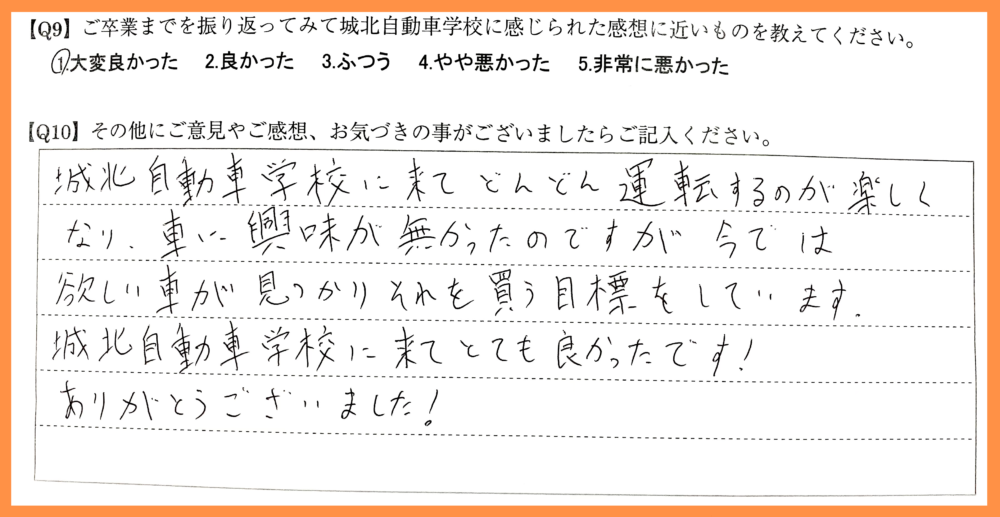 【Q9】ご卒業までを振り返ってみて城北自動車学校に感じられた感想に近いものを教えてください。
①.大変良かった 2.良かった 3.ふつう 4.やや悪かった 5.非常に悪かった
【Q10】その他にご意見やご感想、お気づきの事がございましたらご記入ください。
城北自動車学校に来てどんどん運転するのが楽しく
なり、車に興味が無かったのですが今では
欲しい車が見つかりそれを買う目標をしています.
城北自動車学校に来てとても良かったです!
ありがとうございました!